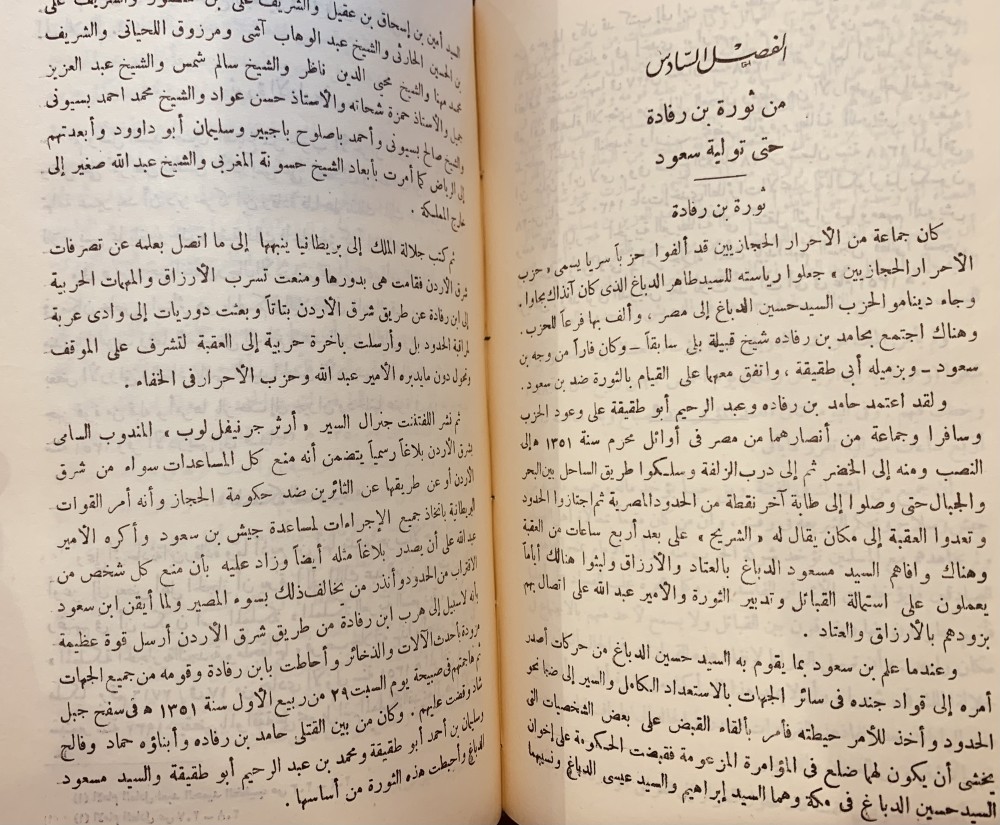 الفصل السادس
من ثورة بن رفادة
حتى تولية سعود
ثورة بن رفادة
كان جماعة من الأحرار الحجازيين قد ألفوا حزباً سريا يسمى «حزب
الأحرار الحجازيين» جعلوا رياسته للسيد طاهر الدباغ الذى كان آنذاك بجاوا.
وجاء دينامو الحزب السيد حسين الدباغ إلى مصر، وألف بها فرعاً للحزب.
وهناك اجتمع بحامد بن رفاده شيخ قبيلة بلى سابقاً ــ وكان فاراً من وجه بن
سعود ــ وبزميله أبى طقيقة، واتفق معهما على القيام بالثورة ضد بن سعود.
ولقد اعتمد حامد بن رفاده وعبد الرحيم أبو طقيقة على وعود الحزب
وسافرا وجماعة من أنصارهما من مصر فى أوائل محرم سنة ١٣٥١ ه إلى
النصب ومنه إلى الخضر ثم إلى درب الزلفة وسلكوا طريق الساحل بين البحر
والجبال حتى وصلوا إلى طابة آخر نقطة من الحدود المصرية ثم اجتازوا الحدود
وتعدوا العقبة إلى مكان يقال له «الشريح» على بعد أربع ساعات من العقبة
وهناك وافاهم السيد مسعود الدباغ بالعتاد والأرزاق ولبثوا هنالك أياماً
يعملون على استمالة القبائل وتدبير الثورة والأمير عبد الله على اتصال بهم
يزودهم بالأرزاق والعتاد.
وعندما علم بن سعود بما يقوم به السيد حسين الدباغ من حركات أصدر
أمره إلى قواد جنده فى سائر الجهات بالاستعداد الكامل والسير إلى ضبا نحو
الحدود وأخذ للأمر حيطته فأمر بألقاء القبض على بعض الشخصيات التى
يخشى أن يكون لهما ضلع فى المؤامرة المزعومة فقبضت الحكومة على إخوان
السيد حسين الدباغ فى مكة وهما السيد إبراهيم والسيد عيسى الدباغ ونسيبهما
السيد أمين بن إسحاق بن عقيل والشريف على بن والشريف على
بن الحسين الحارثى والشيخ عبد الوهاب آشى ومرزوق اللحيانى والشريف
محمد مهنا والشيخ محيى الدين ناظر والشيخ سالم شمس والشيخ عبد العزيز
جميل والأستاذ حمزة شحاته والأستاذ حسن عواد والشيخ محمد احمد بسيونى
والشيخ صالح بسيونى وأحمد باصلوح باجبير وسليمان أبو داوود وأبعدتهم
إلى الرياض كما أمرت بأبعاد الشيخ حسونة المغربى والشيخ عبد الله صغير إلى
خارج المملكة.
ثم كتب جلالة الملك إلى بريطانيا ينبهها إلى ما اتصل بعلمه عن تصرفات
شرق الأردن فقامت هى بدورها ومنعت تسرب الأرزاق والمهمات الحربية
إلى ابن رفادة عن طريق شرق الأردن بتاتاً وبعثت دوريات إلى وادى عربة
لمراقبة الحدود بل وأرسلت باخرة حربية إلى العقبة لتشرف على الموقف
وتحول دون مايدبره الأمير عبد الله وحزب الأحرار فى الخفاء.
ثم نشر اللفتننت جنرال السير «أرثر جرنيفل لوب» المندوب السامى
بشرق الأردن بلاغاً رسمياً يتضمن أنه منع كل المساعدات سواء من شرق
الأردن أو عن طريقها عن الثائرين ضد حكومة الحجاز وأنه أمر القوات
البريطانية باتخاذ جميع الإجراءات لمساعدة جيش بن سعود وأكره الأمير
عبد الله على أن يصدر بلاغاً مثله أيضاً وزاد عليه بأن منع كل شخص من
الاقتراب من الحدود وأنذر من يخالف ذلك بسوء المصير ولما أيقن ابن سعود
بأنه لاسبيل إلى هرب ابن رفادة من طريق شرق الأردن أرسل قوة عظيمة
مزودة بأحدث الآلات والذخائر وأحاطت بابن رفادة وقومه من جميع الجهات
ثم هاجمتهم فى صبيحة يوم السبت ٢٩ من ربيع الأول سنة ١٣٥١ ه فى سفح جبل
شاد وقضت عليهم. وكان من بين القتلى حامد بن رفاده وأبناؤه حماد وفالح
وسليمان بن أحمد أبو طقيقة ومحمد بن عبد الرحيم أبو طقيقة والسيد مسعود
الدباغ وأحبطت هذه الثورة من أساسها.